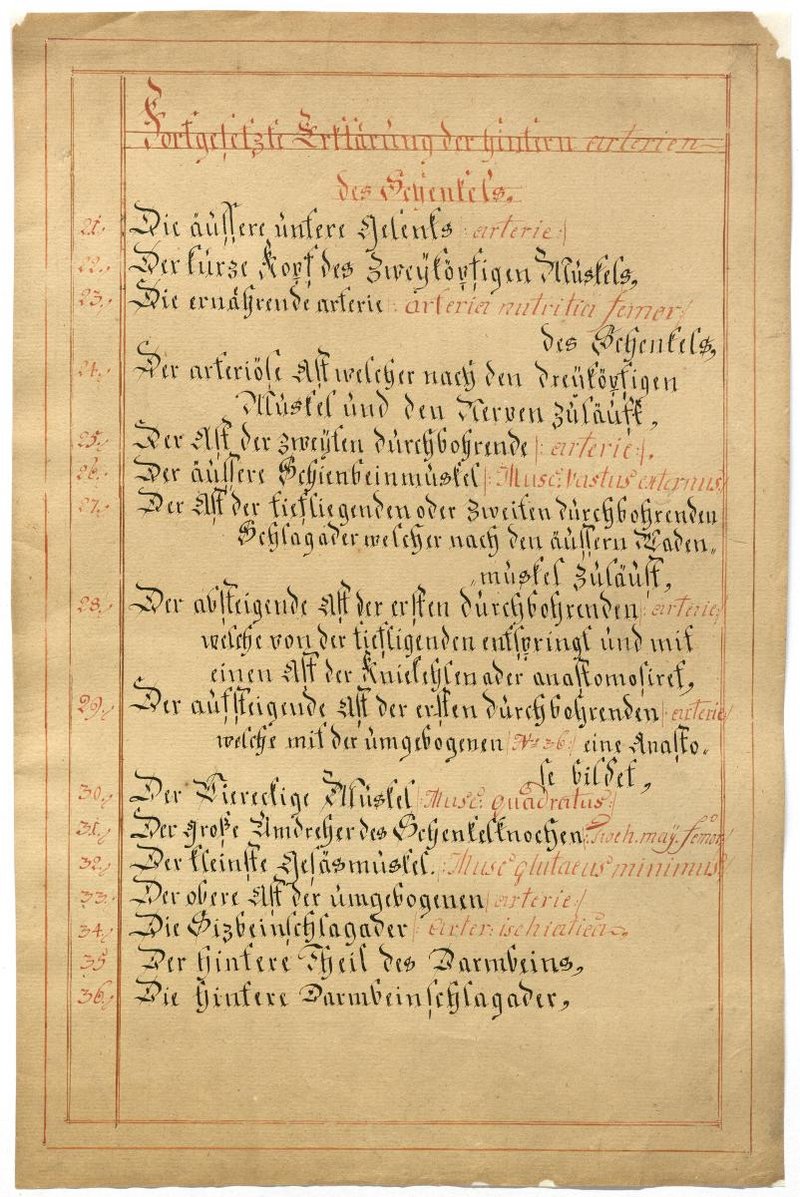 Fortgesetzte Erklärung der hintern arterien
des Schenkels.
21. Die äussere untere Gelenks arterie
22. Der kurze Kopf des Zweyköpfigen Muskels,
23. Die ernährende arterie arteria nutritia femor
des Schenkels,
24. Der arteriöse Ast welcher nach den dreyköpfigen
Muskel und den Nerven zuläuft,
25. Der Ast der zweyten durchbohrende arterie.
26. Der äussere Schienbeinmuskel Musc: vastus externus
27. Der Ast der tiefliegenden oder zweiten durchbohrenden
Schlagader welcher nach den äussern Waden„
„muskel zuläuft,
28. Der absteigende Ast der ersten durchbohrenden arterie
welche von der tiefligenden entspringt und mit
einen Ast der Kniekehlenader anastomosiret,
29. Der aufsteigende Ast der ersten durchbohrenden arterie
welche mit der umgebogenen N° 36 eine Anasto„
se bildet,
30. Der Viereckige Muskel Musc: quadratus
31. Der große Umdreher des Schenkelknochen Troch. maj. femor
32. Der kleinste Gesäsmuskel. Musc glutaeus minimus
33. Der obere Ast der umgebogenen arterie
34. Die Sizbeinschlagader Arter: ischiatica
35 Der hintere Theil des Darmbeins,
36. Die hintere Darmbeinschlagader,